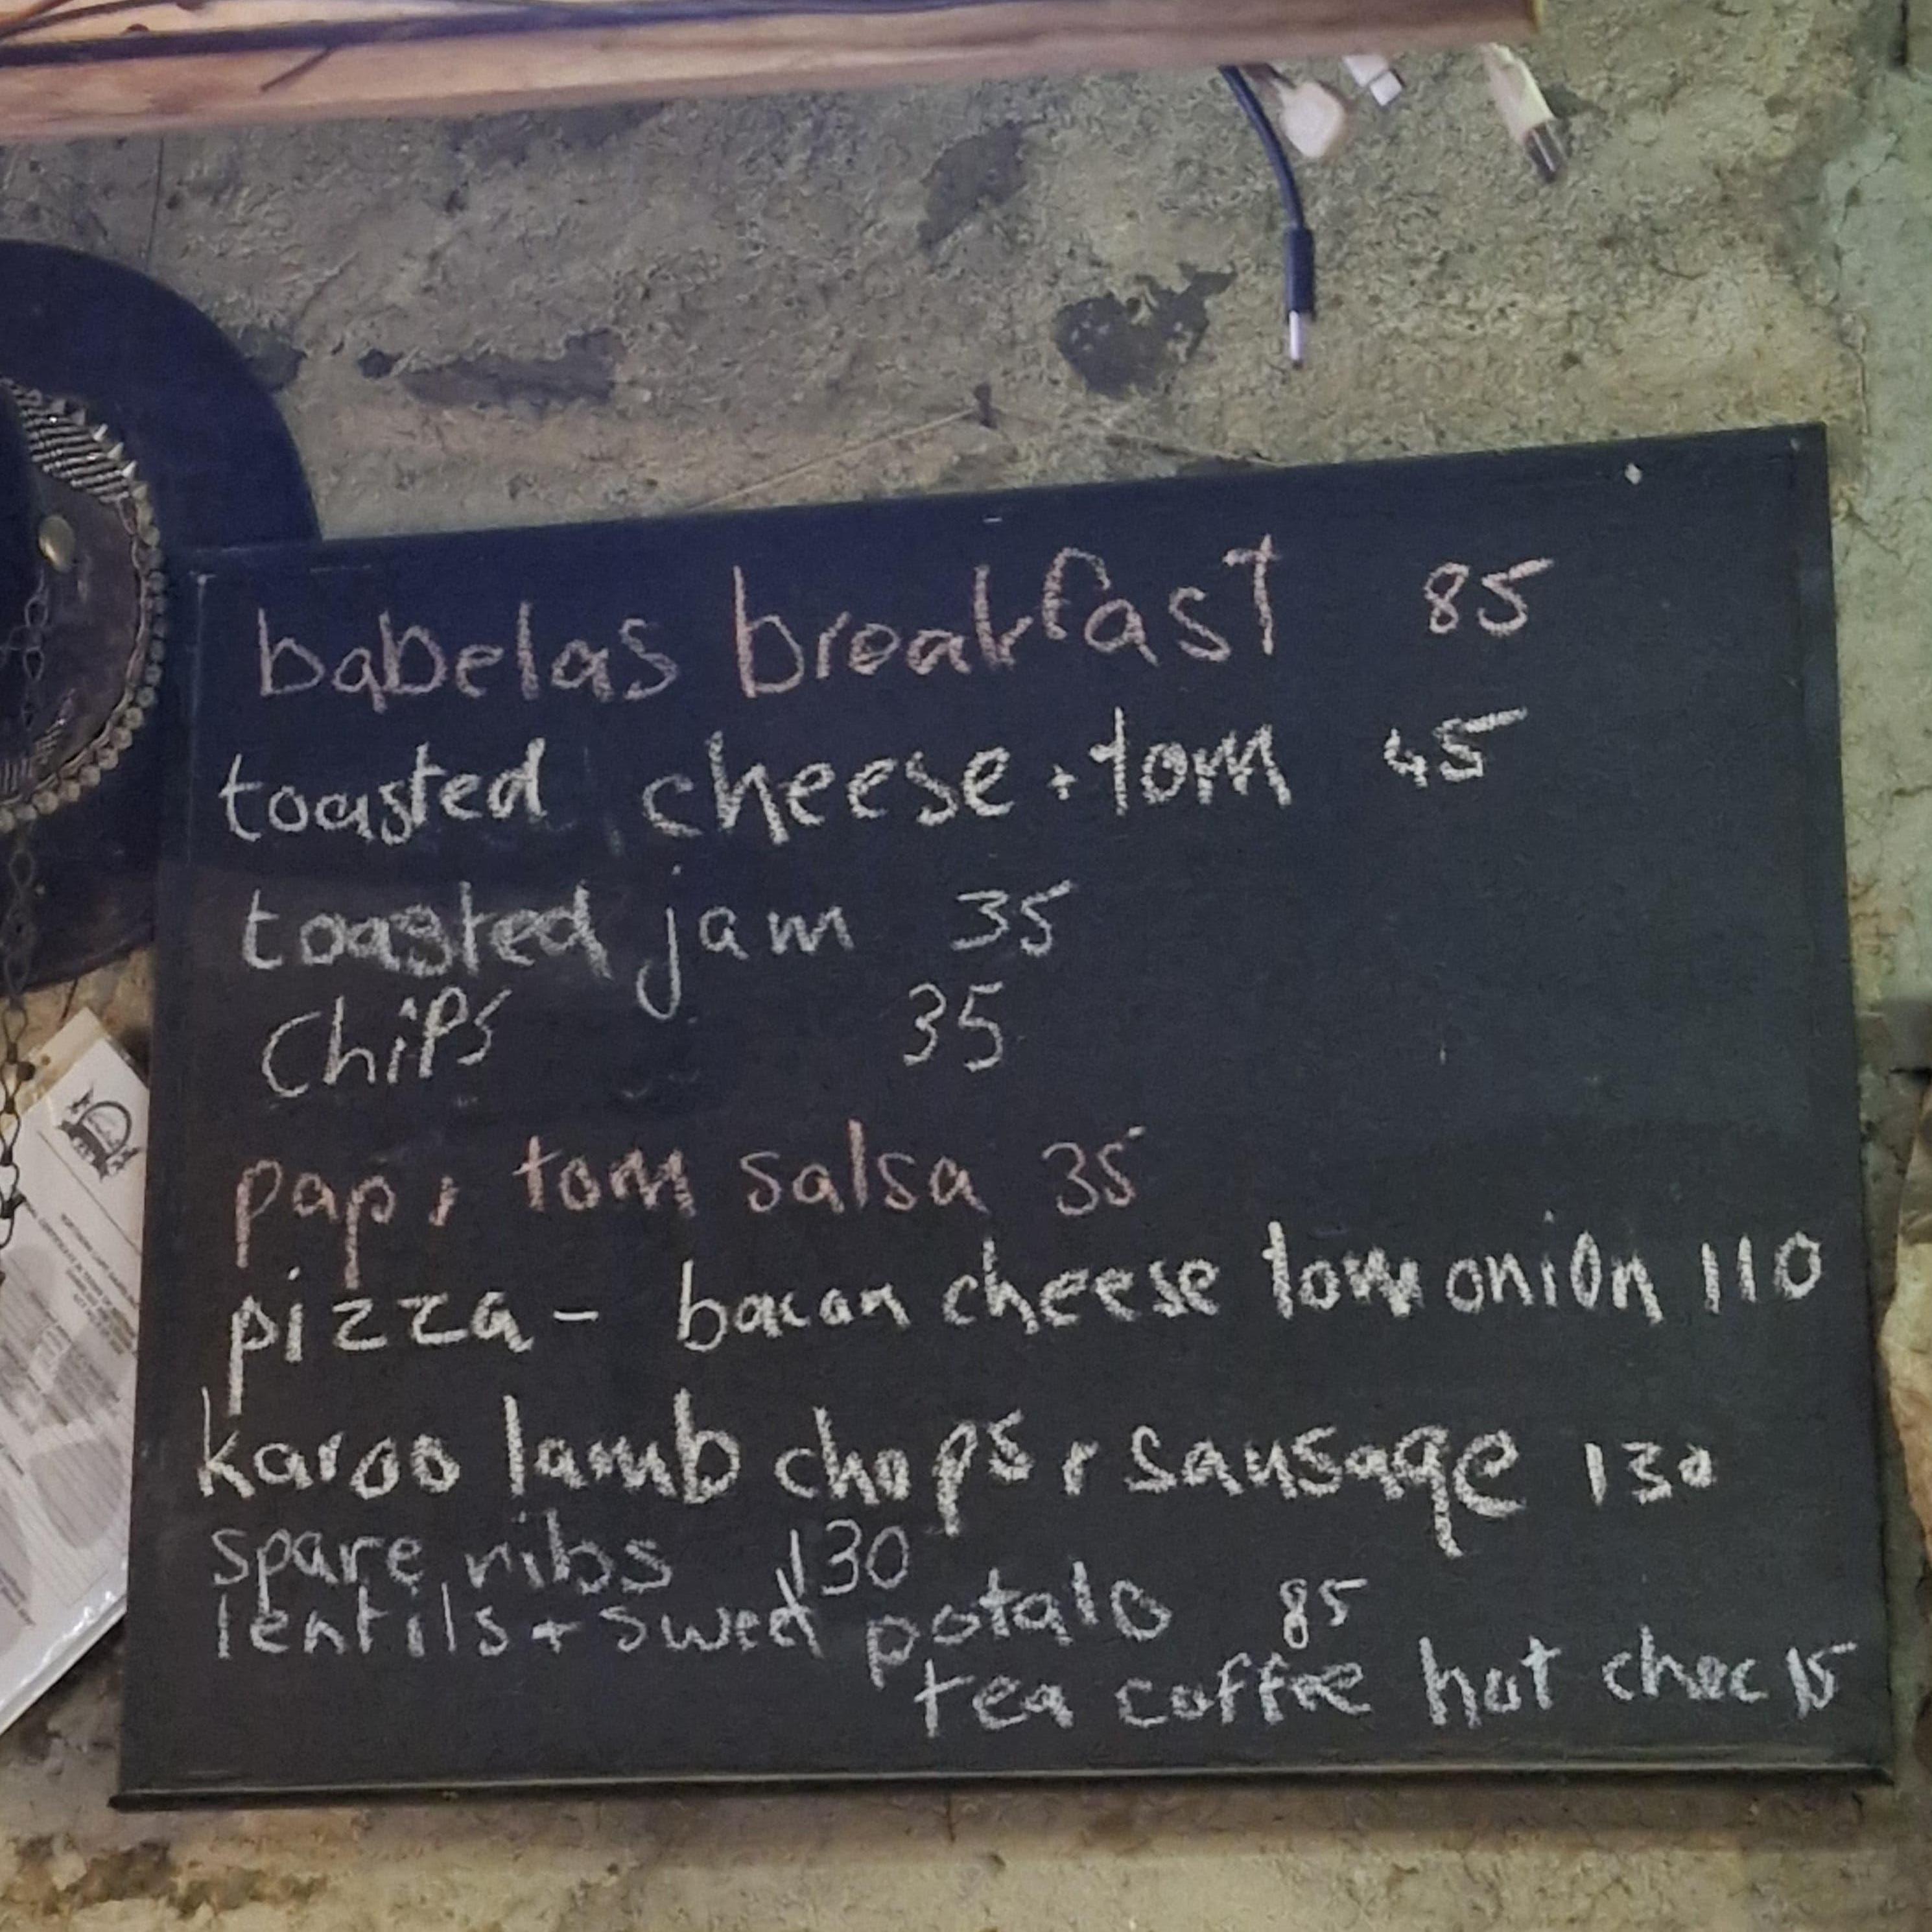 babelas breakfast 85
toasted cheese + tom 45
toasted jam 35
Chips 35
pap + tom salsa 35
pizza - bacon cheese tom onion 110
karoo lamb chops + sausage 130
spare ribs 130
lentils + sweet potato 85
tea coffee hot choc 15